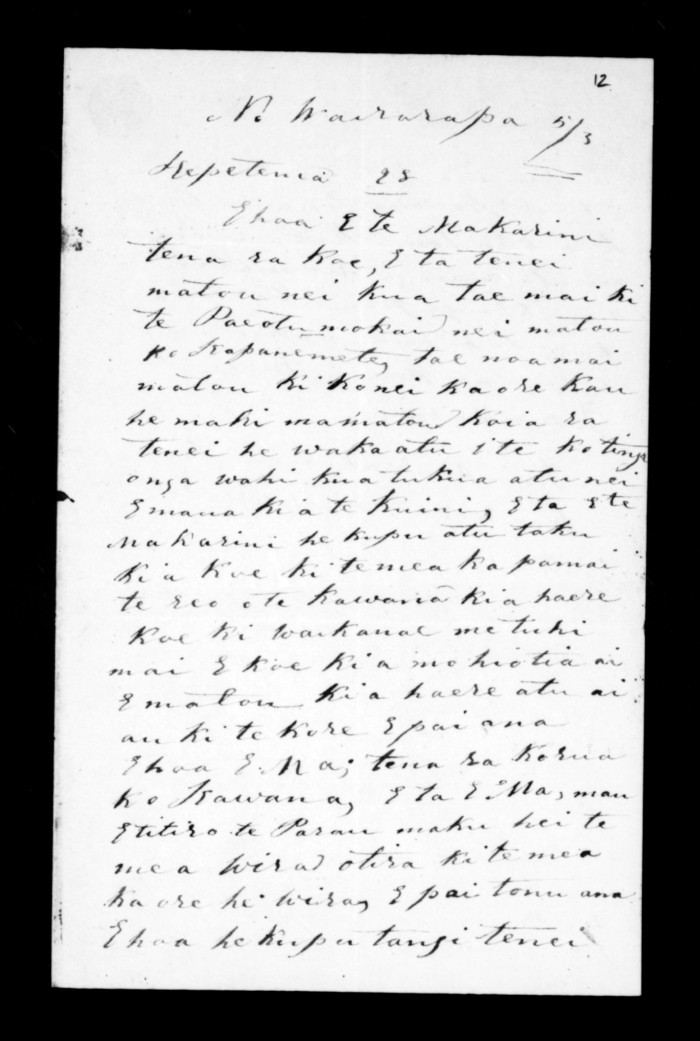 12
No Wairarapa 5/3
Hepetema 28
Ehoa E te Makarini
tena ra koe, E ta tenei
matou nei kua tae mai ki
te Paeotumokai nei matou
ko Kapanemete, tae noa mai
matou ki konei kaore kau
he mahi mamatou koia ra
tenei he wakaatu i te kotinga
onga wahi kua tukua atu nei
E maua ki a te Kuini, E ta E te
Makarini he kupu atu taku
ki a koe ki te mea ka pa mai
te reo o te Kawana kia haere
koe ki Waikanae me tuhi
mai E koe kia mohiotia ai
E matou kia haere atu ai
au ki te kore E pai ana
Ehoa E Ma; tena ra korua
ko Kawana, E ta E Ma, mau
E titiro te Parau maku hei te
mea wira otira ki te mea
kaore he wira, E pai tonu ana
Ehoa he kupu tangi tenei